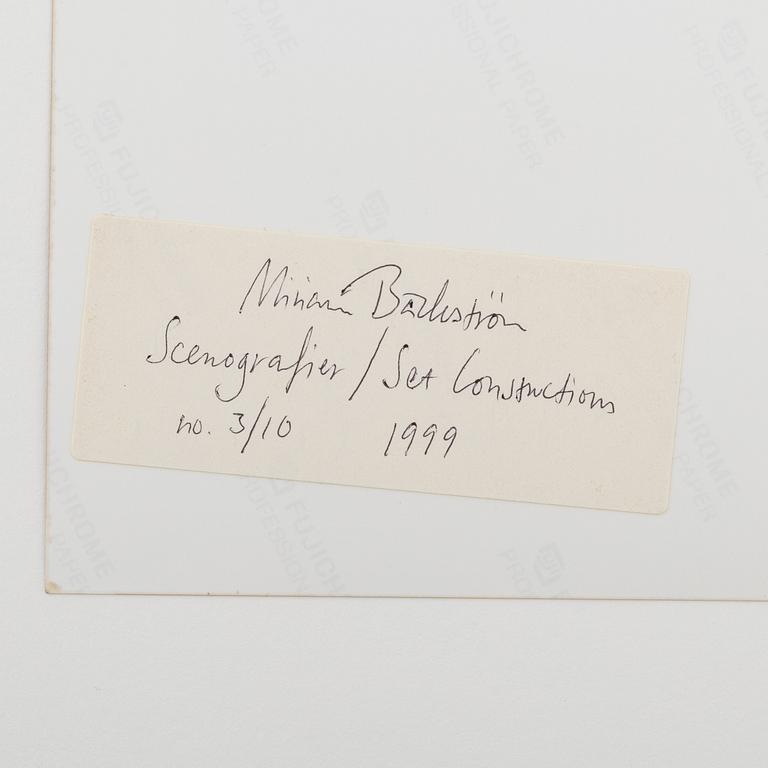 FUJICHROME
PROFESSIONAL PAPER
FUJICHROME
PROFESSIONAL PAPER
FUJICHROME
PROFESSIONAL PAPER
Miriam Bäckström
Scenografier / Set Constructions
no. 3/10 1999
FUJICHROME
PROFESSIONAL PAPER